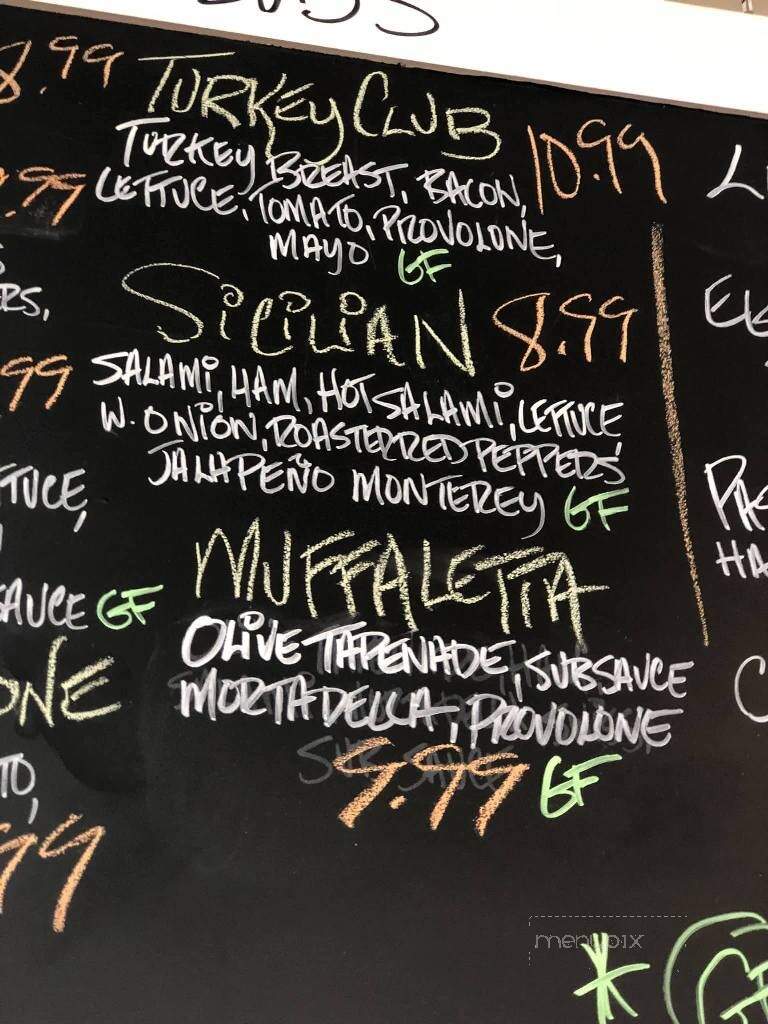 8.99
TURKEY CLUB
TURKEY BREAST, BACON,
10.99
LETTUCE, TOMATO, PROVOLONE,
MAYO GF
SICILIAN 8.99
SALAMI, HAM, HOT SALAMI, LETTUCE,
W. ONION, ROASTERRED PEPPERS
JALAPEÑO MONTEREY GF
MUFFALETTA
OLIVE TAPENADE, SUBSAUCE
MORTADELLA, PROVOLONE
9.99 GF
.99
ERS,
.99
TUCE,
SAUCE GF
ONE
TO,
99
L
PAS
HA
C
menupix
* G